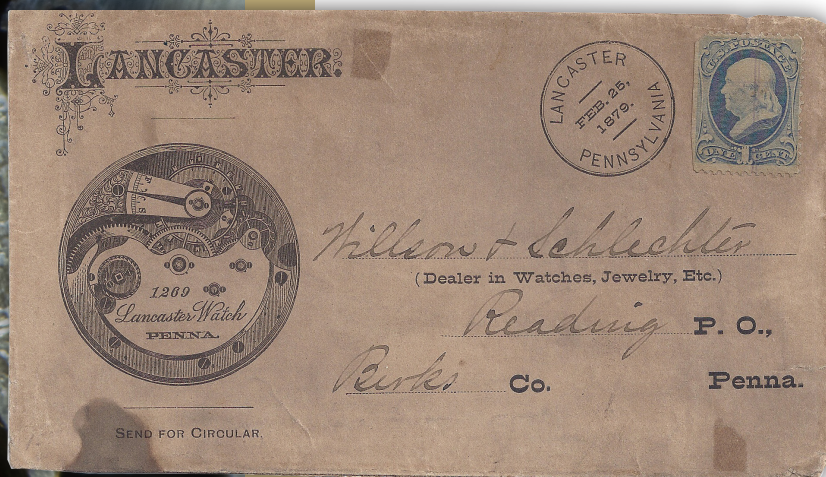 LANCASTER.
LANCASTER
FEB. 25,
1879.
PENNSYLVANIA
U.S. POSTAGE
ONE CENT
1269
Lancaster Watch
PENNA.
SEND FOR CIRCULAR.
Willson & Schlechter
(Dealer in Watches, Jewelry, Etc.)
Reading P. O.,
Berks Co. Penna.